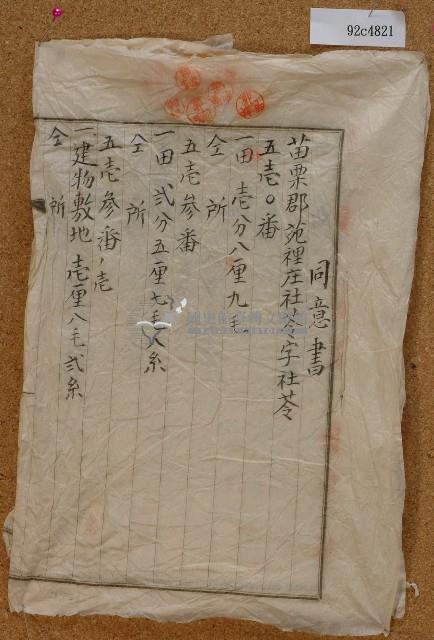 92c4821
同意書
苗栗郡苑裡庄社苓字社苓
五壱〇番
一田 壱分八厘九毛
仝所
五壱参番
一田 弐分五厘七毛八糸
仝所
五壱参番ノ壱
一建物敷地 壱厘八毛弐糸
仝所